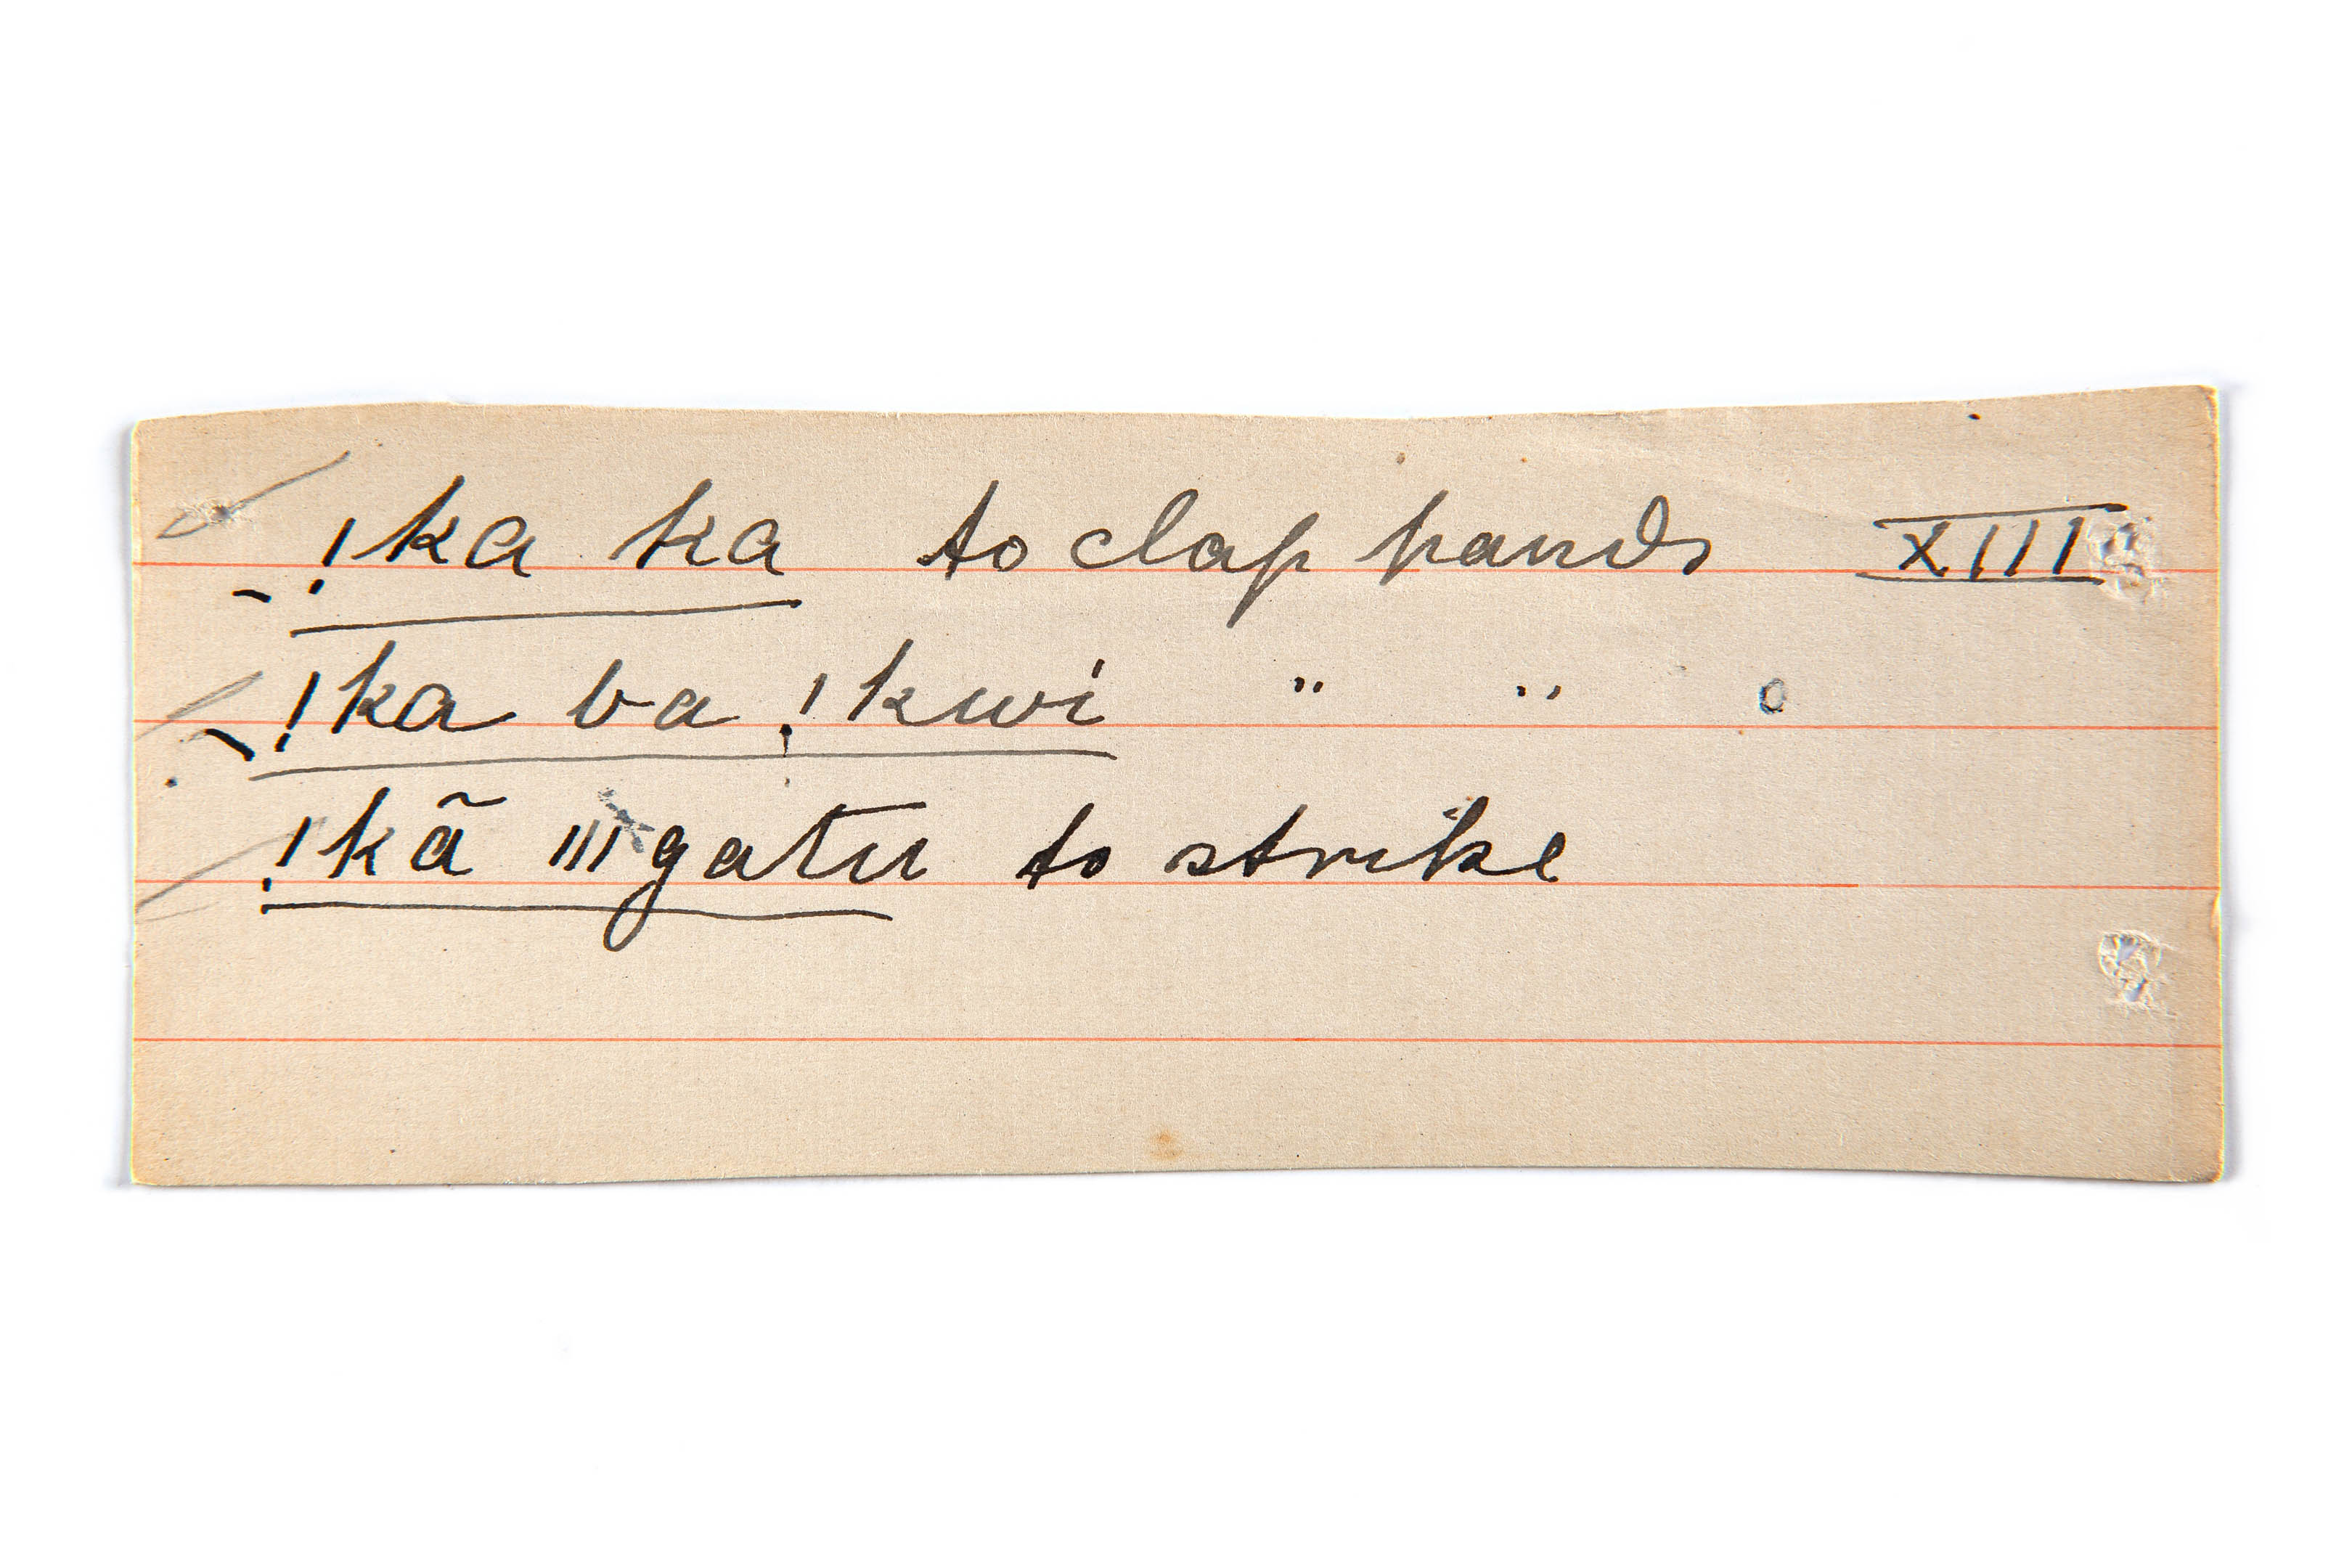 !ka ka to clap hands XIII
!ka ba !kwi " "
!kã |||gatu to strike